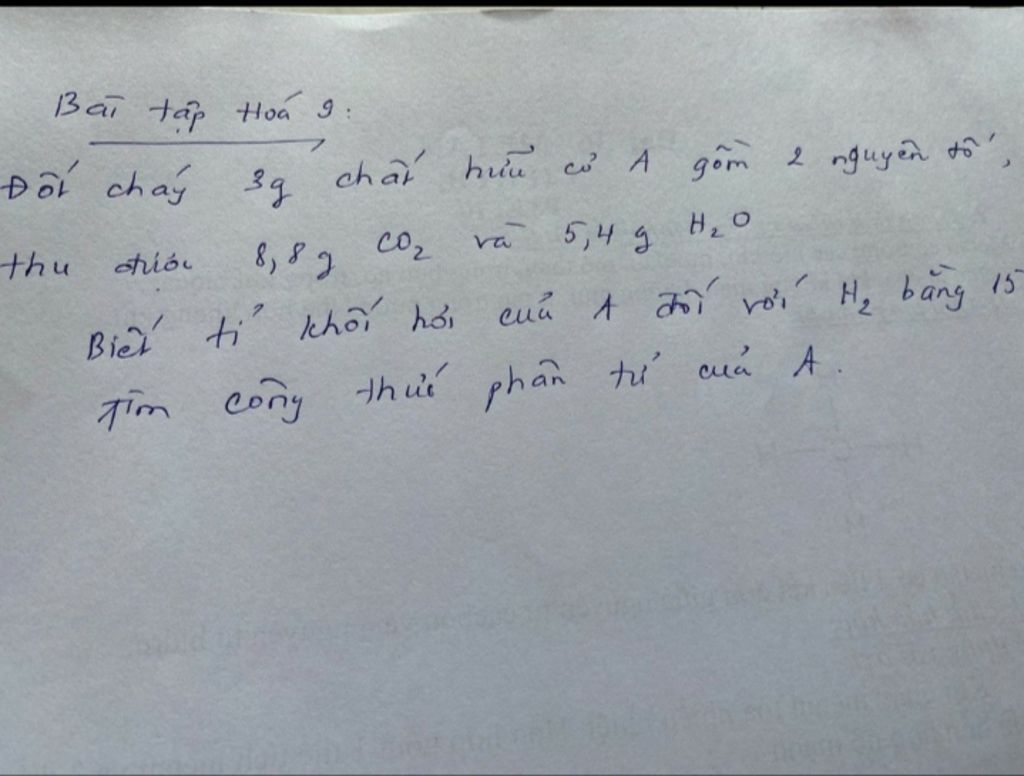 Bài tập Hoá 9:
Đốt cháy 3g chất hữu cơ A gồm 2 nguyên tố,
thu được 8,8g CO₂ và 5,4g H₂O
Biết tỉ khối hơi của A đối với H₂ bằng 15
Tìm công thức phân tử của A.